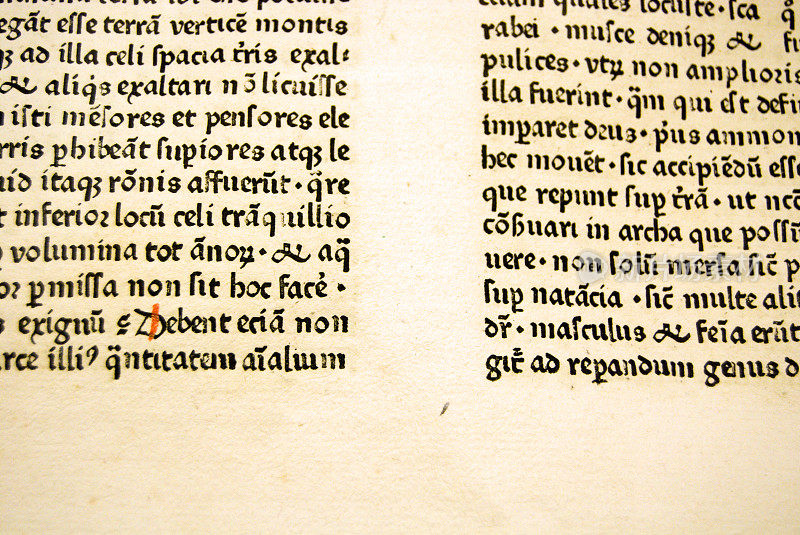 egāt esse terrā verticē montis
ad illa celi spacia t̄ris exal⸗
⁊ aliq̇s exaltari nō licuisse
isti mēsores et pensores ele
rris ꝑhibeāt suꝑiores atqꝫ le
uid itaqꝫ rōnis affuerūt · q̄re
inferior locū celi trāquillio
volumina tot ānoꝝ · ⁊ aq̄
ꝑmissa non sit hoc facē ·
exignū Debent eciā non
arce illiꝰ q̄ntitatem aīalium
etiam quales locuste · sca
rabei · musce deniqꝫ ⁊
pulices · vtꝝ non amplioris
illa fuerint · q̄m qui est
imꝑaret deus · pꝰus ammon
hec mouēt · sic accipiēdū
que repunt suꝑ t̄rā · ut
in archa que possūt
uere · non solū mersa sic̄
suꝑ natācia · sic̄ multe
dr̄ · masculus ⁊ feīa erūt
git̄ ad reꝑandum genus